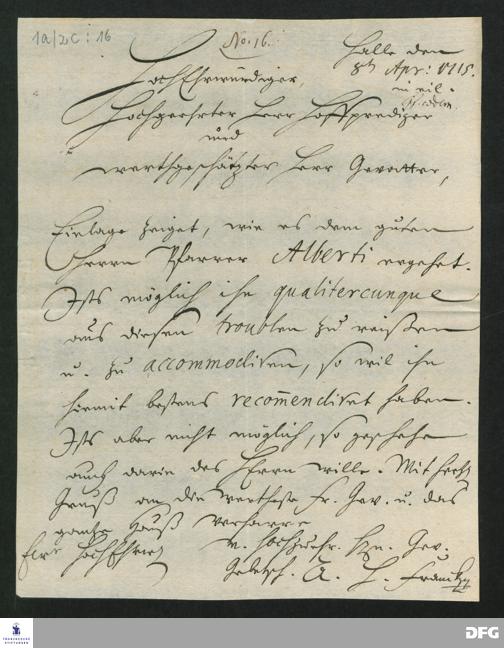 1a/2c : 16
No. 16.
Halle den
8t Apr: 1715.
in eil.
HochEhrwürdiger,
Hochgeehrter Herr Hoffprediger
und
werthgeschätzter Herr Gevatter,
Einlage zeiget, wie es dem guten
Herrn Pfarrer Alberti ergehet.
Ists möglich ihn qualitercunque
aus diesen troublen zu reißen
u. zu accommodiren, so wil ihn
hiemit bestens recom̄endiret haben.
Ists aber nicht möglich, so geschehe
auch darin des Herrn wille. Mit hertzl
Gruß an die wertheste Fr. Gev. u. das
gantze Hauß verharre
Ew. HochEhrw
m. hochzuehr. Hrn. Gev.
Gebetsch. A. H. Francke
FRANCKESCHE
STIFTUNGEN
DFG